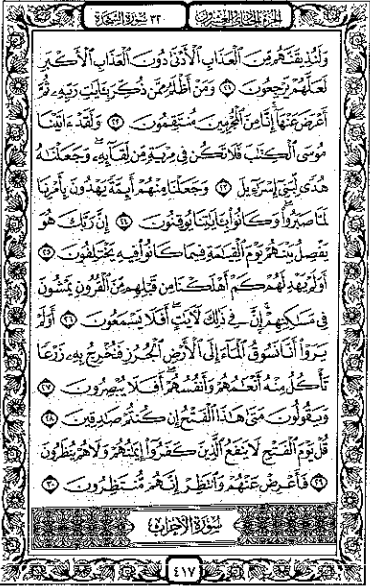 الجزء الحادي والعشرون ٣٢ سورة السجدة
وَلَنُذِيقَنَّهُم مِّنَ ٱلْعَذَابِ ٱلْأَدْنَىٰ دُونَ ٱلْعَذَابِ ٱلْأَكْبَرِ
لَعَلَّهُمْ يَرْجِعُونَ ٢١ وَمَنْ أَظْلَمُ مِمَّن ذُكِّرَ بِـَٔايَٰتِ رَبِّهِۦ ثُمَّ
أَعْرَضَ عَنْهَآ إِنَّا مِنَ ٱلْمُجْرِمِينَ مُنتَقِمُونَ ٢٢ وَلَقَدْ ءَاتَيْنَا
مُوسَى ٱلْكِتَٰبَ فَلَا تَكُن فِى مِرْيَةٍ مِّن لِّقَآئِهِۦ وَجَعَلْنَٰهُ
هُدًى لِّبَنِىٓ إِسْرَٰٓءِيلَ ٢٣ وَجَعَلْنَا مِنْهُمْ أَئِمَّةً يَهْدُونَ بِأَمْرِنَا
لَمَّا صَبَرُوا۟ وَكَانُوا۟ بِـَٔايَٰتِنَا يُوقِنُونَ ٢٤ إِنَّ رَبَّكَ هُوَ
يَفْصِلُ بَيْنَهُمْ يَوْمَ ٱلْقِيَٰمَةِ فِيمَا كَانُوا۟ فِيهِ يَخْتَلِفُونَ ٢٥
أَوَلَمْ يَهْدِ لَهُمْ كَمْ أَهْلَكْنَا مِن قَبْلِهِم مِّنَ ٱلْقُرُونِ يَمْشُونَ
فِى مَسَٰكِنِهِمْ إِنَّ فِى ذَٰلِكَ لَـَٔايَٰتٍ أَفَلَا يَسْمَعُونَ ٢٦ أَوَلَمْ
يَرَوْا۟ أَنَّا نَسُوقُ ٱلْمَآءَ إِلَى ٱلْأَرْضِ ٱلْجُرُزِ فَنُخْرِجُ بِهِۦ زَرْعًا
تَأْكُلُ مِنْهُ أَنْعَٰمُهُمْ وَأَنفُسُهُمْ أَفَلَا يُبْصِرُونَ ٢٧
وَيَقُولُونَ مَتَىٰ هَٰذَا ٱلْفَتْحُ إِن كُنتُمْ صَٰدِقِينَ ٢٨
قُلْ يَوْمَ ٱلْفَتْحِ لَا يَنفَعُ ٱلَّذِينَ كَفَرُوٓا۟ إِيمَٰنُهُمْ وَلَا هُمْ يُنظَرُونَ
٢٩ فَأَعْرِضْ عَنْهُمْ وَٱنتَظِرْ إِنَّهُم مُّنتَظِرُونَ ٣٠
سُورَةُ الأَحْزَابِ
٤١٧